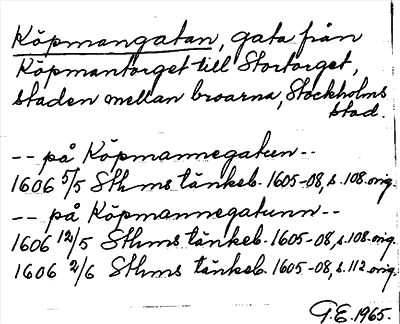 Köpmangatan, gata från
Köpmantorget till Stortorget,
staden mellan broarna, Stockholms
stad.
-- på Köpmannegatun --
1606 5/5 Sthms tänkeb. 1605-08, s. 108. orig.
-- på Köpmannegatunn --
1606 12/5 Sthms tänkeb. 1605-08, s. 108. orig.
1606 2/6 Sthms tänkeb. 1605-08, s. 112. orig.
G.E. 1965.